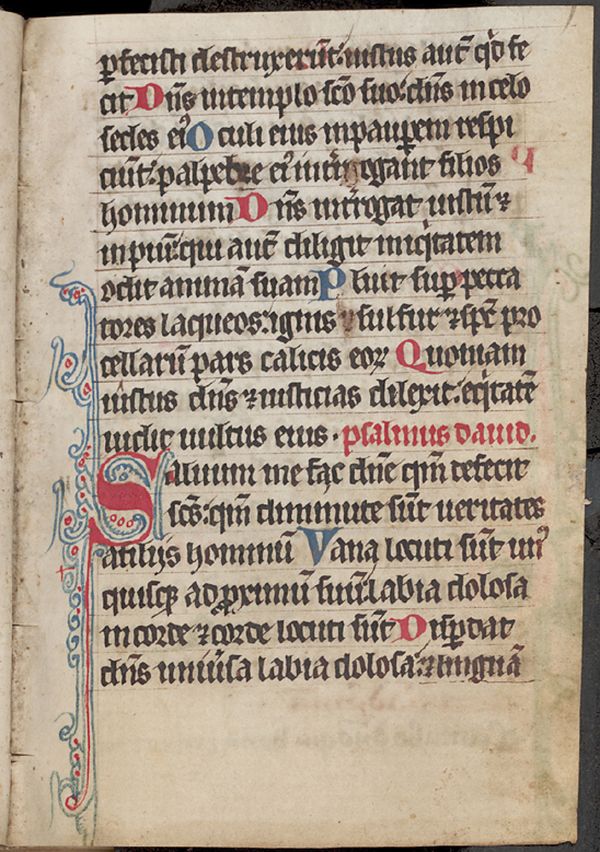 ꝑfecisti destruxerūt: iustus aūt qͥd fe
cit Dn̄s in templo scō suo: dn̄s in celo
sedes eiꝰ Oculi eius in pauꝑem respi
ciūt: palpebre eiꝰ int̄rogant filios
hominum Dn̄s int̄rogat iustū ⁊
inpiū: qui aūt diligit iniqͥtatem
odit animā suam Pluit suꝑ pecca
tores laqueos: ignis sulfur ⁊ sp̄c pro
cellarū pars calicis eoꝝ Quoniam
iustus dn̄s ⁊ iusticias dilexit: eqͥtatē
uidit uultus eius. psalmus dauid.
Saluum me fac dn̄e qm̄ defecit
scs̄: qm̄ diminute sūt ueritates
a filijs hominū Vana locuti sūt unꝰ
quisqꝫ ad ꝓximū suū: labia dolosa
in corde ⁊ corde locuti sūt Disꝑdat
dn̄s uniūsa labia dolosa: ⁊ linguā